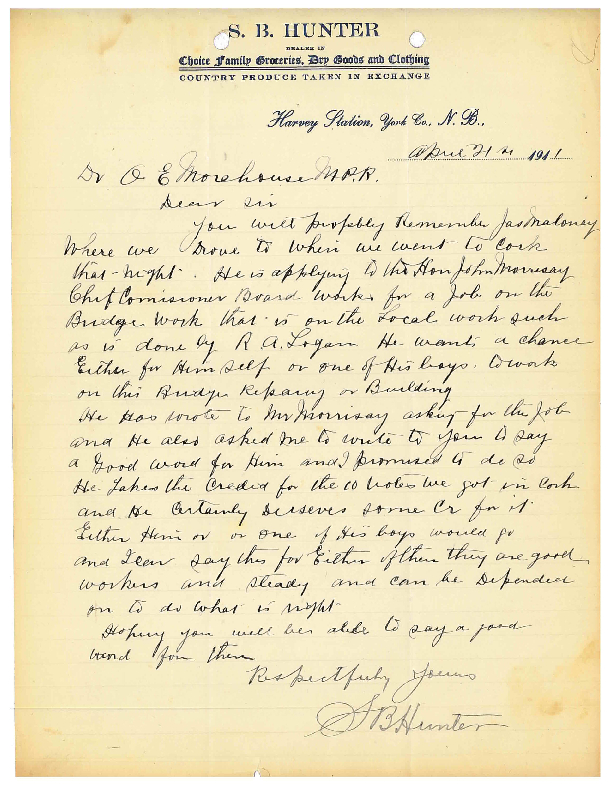 S. B. HUNTER
DEALER IN
Choice Family Groceries, Dry Goods and Clothing
COUNTRY PRODUCE TAKEN IN EXCHANGE
Harvey Station, York Co., N. B.,
April 21 1911
Dr O E Morehouse M.P.P.
Dear Sir
You will propbly Remember Jas Maloney
Where we Drove to When we went to Cork
that night. He is applying to the Hon John Morrisay
Chif Comisioner Board Works for a Job on the
Bridge Work that is on the Local work such
as is done by R A. Logan He wants a chance
Either for Him self or one of His boys. to work
on this Bridge Repairg or Building
He Has wrote to Mr Morrisay asking for the Job
and He also asked me to write to you to say
a Good word for Him and I promised to do so
He Takes the Creded for the 10 Votes we got in Cork
and He Certainly Deserves some Cr for it
Either Him or or one of His boys would go
and I can say this for Either of them they are good
workers and steady and can be Depended
on to do what is right
Hoping you will be able to say a good
word for them
Respectfuly Yours
S B Hunter